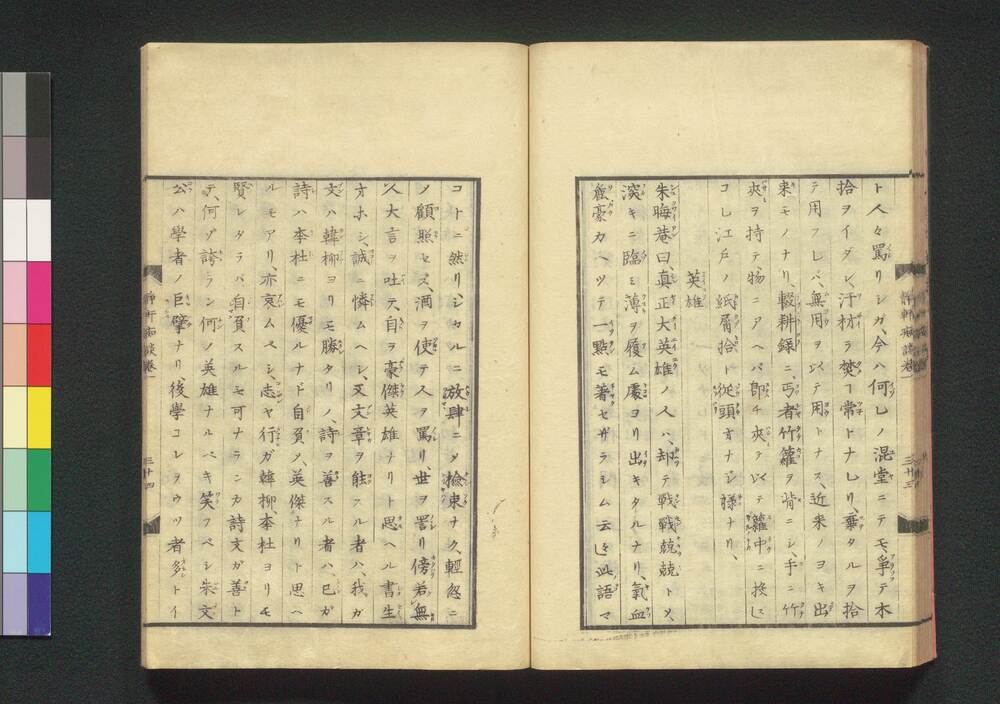 ト人々罵リシガ、今ハ何レノ混堂ニテモ、爭テ木
拾ヲイダシ、汙材ヲ焚コ常トナレリ、棄タルヲ拾
テ用フレバ、無用ヲ以テ用トナス、近来ノヨキ出
来モノナリ、輟耕録ニ、丐者竹籮ヲ背ニシ、手ニ竹
夾ヲ持テ物ニアヘバ即チ夾テ以テ籮中ニ投ジ
コレ江戸ノ紙屑拾ト従頭オナジ様ナリ、
英雄
朱晦菴曰真正大英雄ノ人ハ、却テ戦戦競競トメ、
深キニ臨ミ薄ヲ履ム處ヨリ出キタルナリ、氣血
麤豪カヘツテ一點モ著セザラシム云〻此語マ
静軒痴談巻一
三十三
コトニ然リシカルニ放肆ニメ檢束ナク、輕忽ニ
ノ顧照セズ、酒ヲ使テ人ヲ罵リ、世ヲ詈リ傍若無
人大言ヲ吐テ、自ラ豪傑英雄ナリト思ヘル書生
オホシ、誠ニ憐ムヘシ、又文章ヲ能スル者ハ、我ガ
文ハ韓柳ヨリモ勝タリノ、詩ヲ善スル者ハ、己ガ
詩ハ李杜ニモ優ルナド自負ノ、英傑ナリト思ヘ
ルモアリ、亦哀ムベシ、志ヤ行ガ韓柳、李杜ヨリモ
賢レタラバ、自負スルモ可ナランカ詩文ガ善ト
テ、何ゾ誇ラン何ノ英雄ナルベキ笑フベシ朱文
公ハ學者ノ巨擘ナリ、後學コレヲウツ者多トイ
静軒痴談巻一
三十四